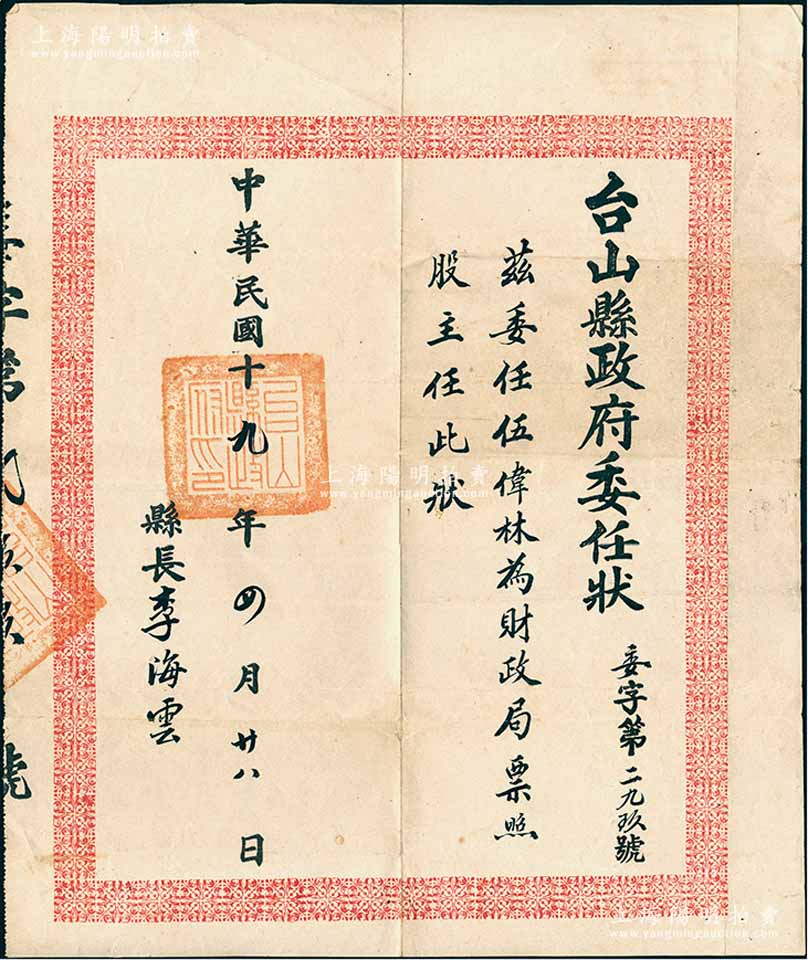 台山縣政府委任狀
委字第二九玖號
茲委任伍偉林為財政局票照
股主任此狀
中華民國十九年四月廿八日
縣長李海雲
台山縣政府印
委字第
號
上海陽明拍賣
www.yangmingauction.com
上海陽明拍賣
www.yangmingauction.com
上海陽明拍賣
www.yangmingauction.com